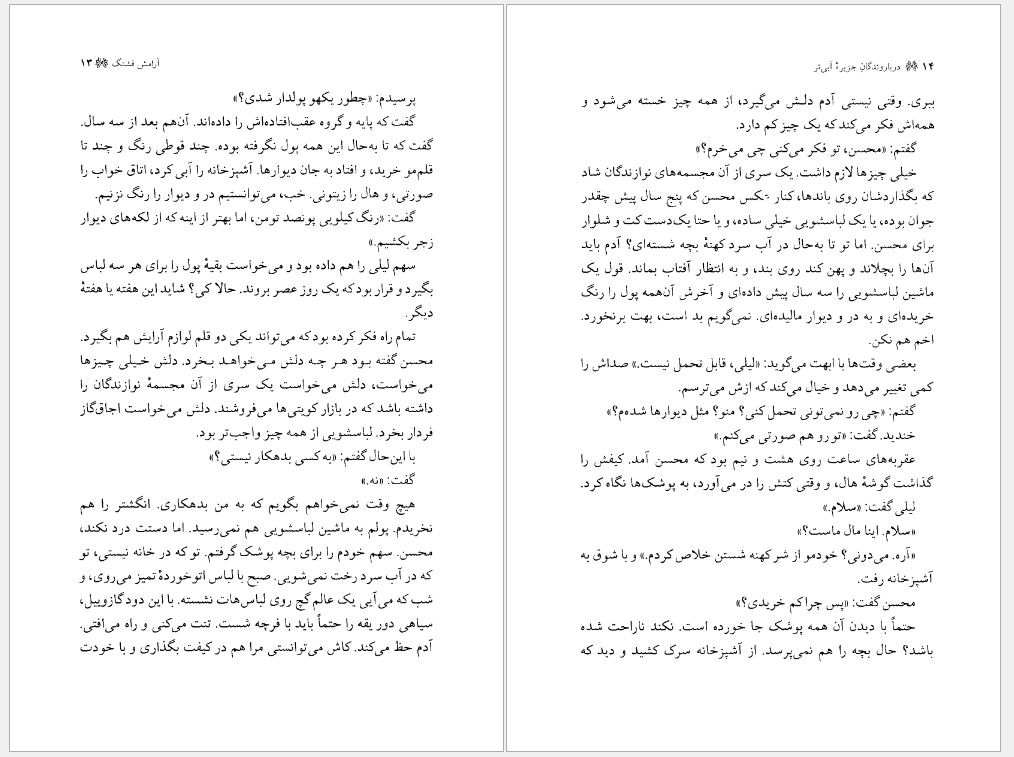 آرامش قشنگ ۱۳
پرسیدم: «چطور یکهو پولدار شدی؟»
گفت که پایه و گروه عقب‌افتاده‌اش را داده‌اند. آن‌هم بعد از سه سال.
گفت که تا به‌حال این همه پول نگرفته بوده. چند قوطی رنگ و چند تا
قلم‌مو خرید، و افتاد به جان دیوارها. آشپزخانه را آبی کرد، اتاق خواب را
صورتی، و هال را زیتونی. خب، می‌توانستیم در و دیوار را رنگ نزنیم.
گفت: «رنگ کیلویی پونصد تومن، اما بهتر از اینه که از لکه‌های دیوار
زجر بکشیم.»
سهم لیلی را هم داده بود و می‌خواست بقیهٔ پول را برای هر سه لباس
بگیرد و قرار بود که یک روز عصر بروند. حالا کی؟ شاید این هفته یا هفتهٔ
دیگر.
تمام راه فکر کرده بود که می‌تواند یکی دو قلم لوازم آرایش هم بگیرد.
محسن گفته بود هر چه دلش می‌خواهد بخرد. دلش خیلی چیزها
می‌خواست، دلش می‌خواست یک سری از آن مجسمهٔ نوازندگان را
داشته باشد که در بازار کویتی‌ها می‌فروشند. دلش می‌خواست اجاق‌گاز
فردار بخرد. لباسشویی از همه چیز واجب‌تر بود.
با این‌حال گفتم: «به کسی بدهکار نیستی؟»
گفت: «نه.»
هیچ وقت نمی‌خواهم بگویم که به من بدهکاری. انگشتر را هم
نخریدم. پولم به ماشین لباسشویی هم نمی‌رسید. اما دستت درد نکند،
محسن. سهم خودم را برای بچه پوشک گرفتم. تو که در خانه نیستی، تو
که در آب سرد رخت نمی‌شویی. صبح با لباس اتوخوردهٔ تمیز می‌روی، و
شب که می‌آیی یک عالم گچ روی لباس‌هات نشسته. با این دود گازوییل،
سیاهی دور یقه را حتماً باید با فرچه شست. تنت می‌کنی و راه می‌افتی.
آدم حظ می‌کند. کاش می‌توانستی مرا هم در کیفت بگذاری و با خودت
۱۴ دریاروندگان جزیرهٔ آبی‌تر
ببری. وقتی نیستی آدم دلش می‌گیرد، از همه چیز خسته می‌شود و
همه‌اش فکر می‌کند که یک چیز کم دارد.
گفتم: «محسن، تو فکر می‌کنی چی می‌خرم؟»
خیلی چیزها لازم داشت. یک سری از آن مجسمه‌های نوازندگان شاد
که بگذاردشان روی باندها، کنار عکس محسن که پنج سال پیش چقدر
جوان بوده، یا یک لباسشویی خیلی ساده، و یا حتا یک‌دست کت و شلوار
برای محسن. اما تو تا به‌حال در آب سرد کهنهٔ بچه شسته‌ای؟ آدم باید
آن‌ها را بچلاند و پهن کند روی بند، و به انتظار آفتاب بماند. قول یک
ماشین لباسشویی را سه سال پیش داده‌ای و آخرش آن‌همه پول را رنگ
خریده‌ای و به در و دیوار مالیده‌ای. نمی‌گویم بد است، بهت برنخورد.
اخم هم نکن.
بعضی وقت‌ها با ابهت می‌گوید: «لیلی، قابل تحمل نیست.» صداش را
کمی تغییر می‌دهد و خیال می‌کند که ازش می‌ترسم.
گفتم: «چی رو نمی‌تونی تحمل کنی؟ منو؟ مثل دیوارها شده‌م؟»
خندید. گفت: «تو رو هم صورتی می‌کنم.»
عقربه‌های ساعت روی هشت و نیم بود که محسن آمد. کیفش را
گذاشت گوشهٔ هال، و وقتی کتش را در می‌آورد، به پوشک‌ها نگاه کرد.
لیلی گفت: «سلام.»
«سلام. اینا مال ماست؟»
«آره. می‌دونی؟ خودمو از شر کهنه شستن خلاص کردم.» و با شوق به
آشپزخانه رفت.
محسن گفت: «پس چرا کم خریدی؟»
حتماً با دیدن آن همه پوشک جا خورده است. نکند ناراحت شده
باشد؟ حال بچه را هم نمی‌پرسد. از آشپزخانه سرک کشید و دید که